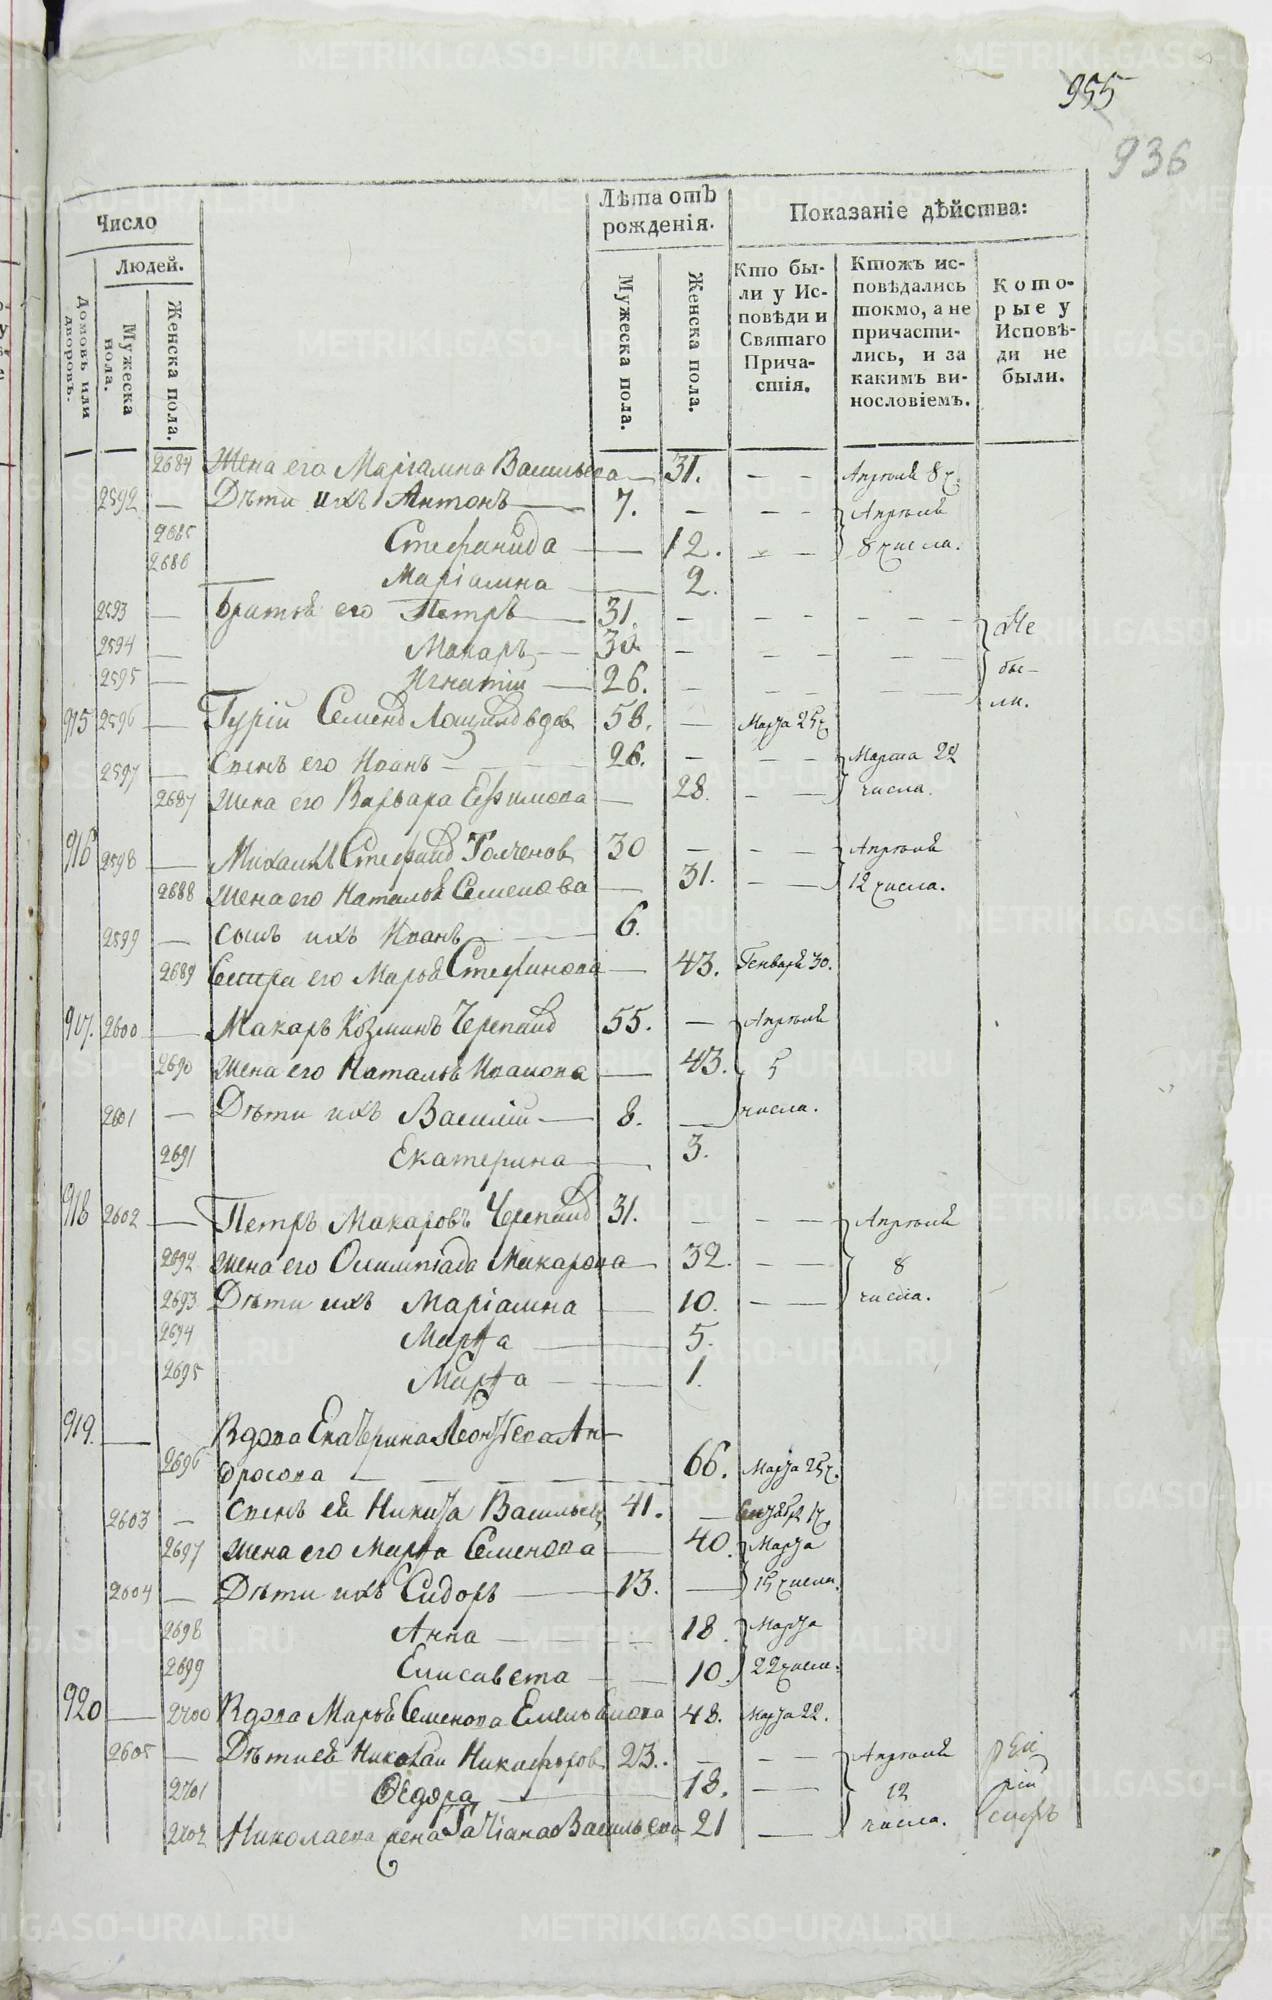 955
936
Число
Людей.
Домовъ или дворовъ.
Мужеска пола.
Женска пола.
Лѣта отъ рожденія.
Мужеска пола.
Женска пола.
Показаніе дѣйства:
Кто были у Исповѣди и Святаго Причастія.
Ктожъ исповѣдались токмо, а не причастились, и за какимъ винословіемъ.
Которые у Исповѣди не были.
2684 Жена его Маріамна Васильева — 31. — — Апрѣля 8 ч.
2592 — Дѣти ихъ Антонъ — 7. — — — Апрѣля
2685 Стефанида — 12. — — 8 числа.
2686 Маріамна — 2.
2593 — Братья его Петръ — 31. — — — — — — Не
2594 — Макаръ — 30. — — — — — бы-
2595 — Игнатій — 26. — — — — ли.
915 2596 — Гурій Семенов вдов 58. — Марта 25 ч.
2597 — Сынъ его Иванъ — 26. — — — Марта 22
2687 Жена его Варвара Ефимова — 28. — — числа.
916 2598 — Михаилъ Стефанов Толченов 30 — — — Апрѣля
2688 Жена его Наталья Семенова — 31. — — 12 числа.
2599 — Сынъ ихъ Иванъ — 6.
2689 Сестра его Марья Стефанова — 43. Генваря 30.
917. 2600 — Макаръ Козминъ Черепанов 55. — Апрѣля
2690 Жена его Наталья Иванова — 43. 5
2601 — Дѣти ихъ Василій — 8. — числа.
2691 Екатерина — 3.
918 2602 — Петръ Макаровъ Черепанов 31. — — — Апрѣля
2692 Жена его Олимпіада Макарова — 32. — — 8
2693 Дѣти ихъ Маріамна — 10. — — числа.
2694 Марѳа — 5.
2695 Марѳа — 1.
919. — Вдова Екатерина Леонтьева Ан-
2696 дросова — 66. Марта 25 ч.
2603 — Сынъ ея Никита Васильев 41. — 17
2697 Жена его Марѳа Семенова — 40. Марта
2604 — Дѣти ихъ Сидоръ — 13. — 15 числа.
2698 Анна — 18. Марта
2699 Елисавета — 10. 22 числа.
920 — 2700 Вдова Марья Семенова Емельянова 48. Марта 22.
2605 — Дѣти ея Николай Никифоров 23. — — — Апрѣля
2701 Ѳедора — 18. — 12
2702 Николаева жена Татіана Васильева 21 — числа.